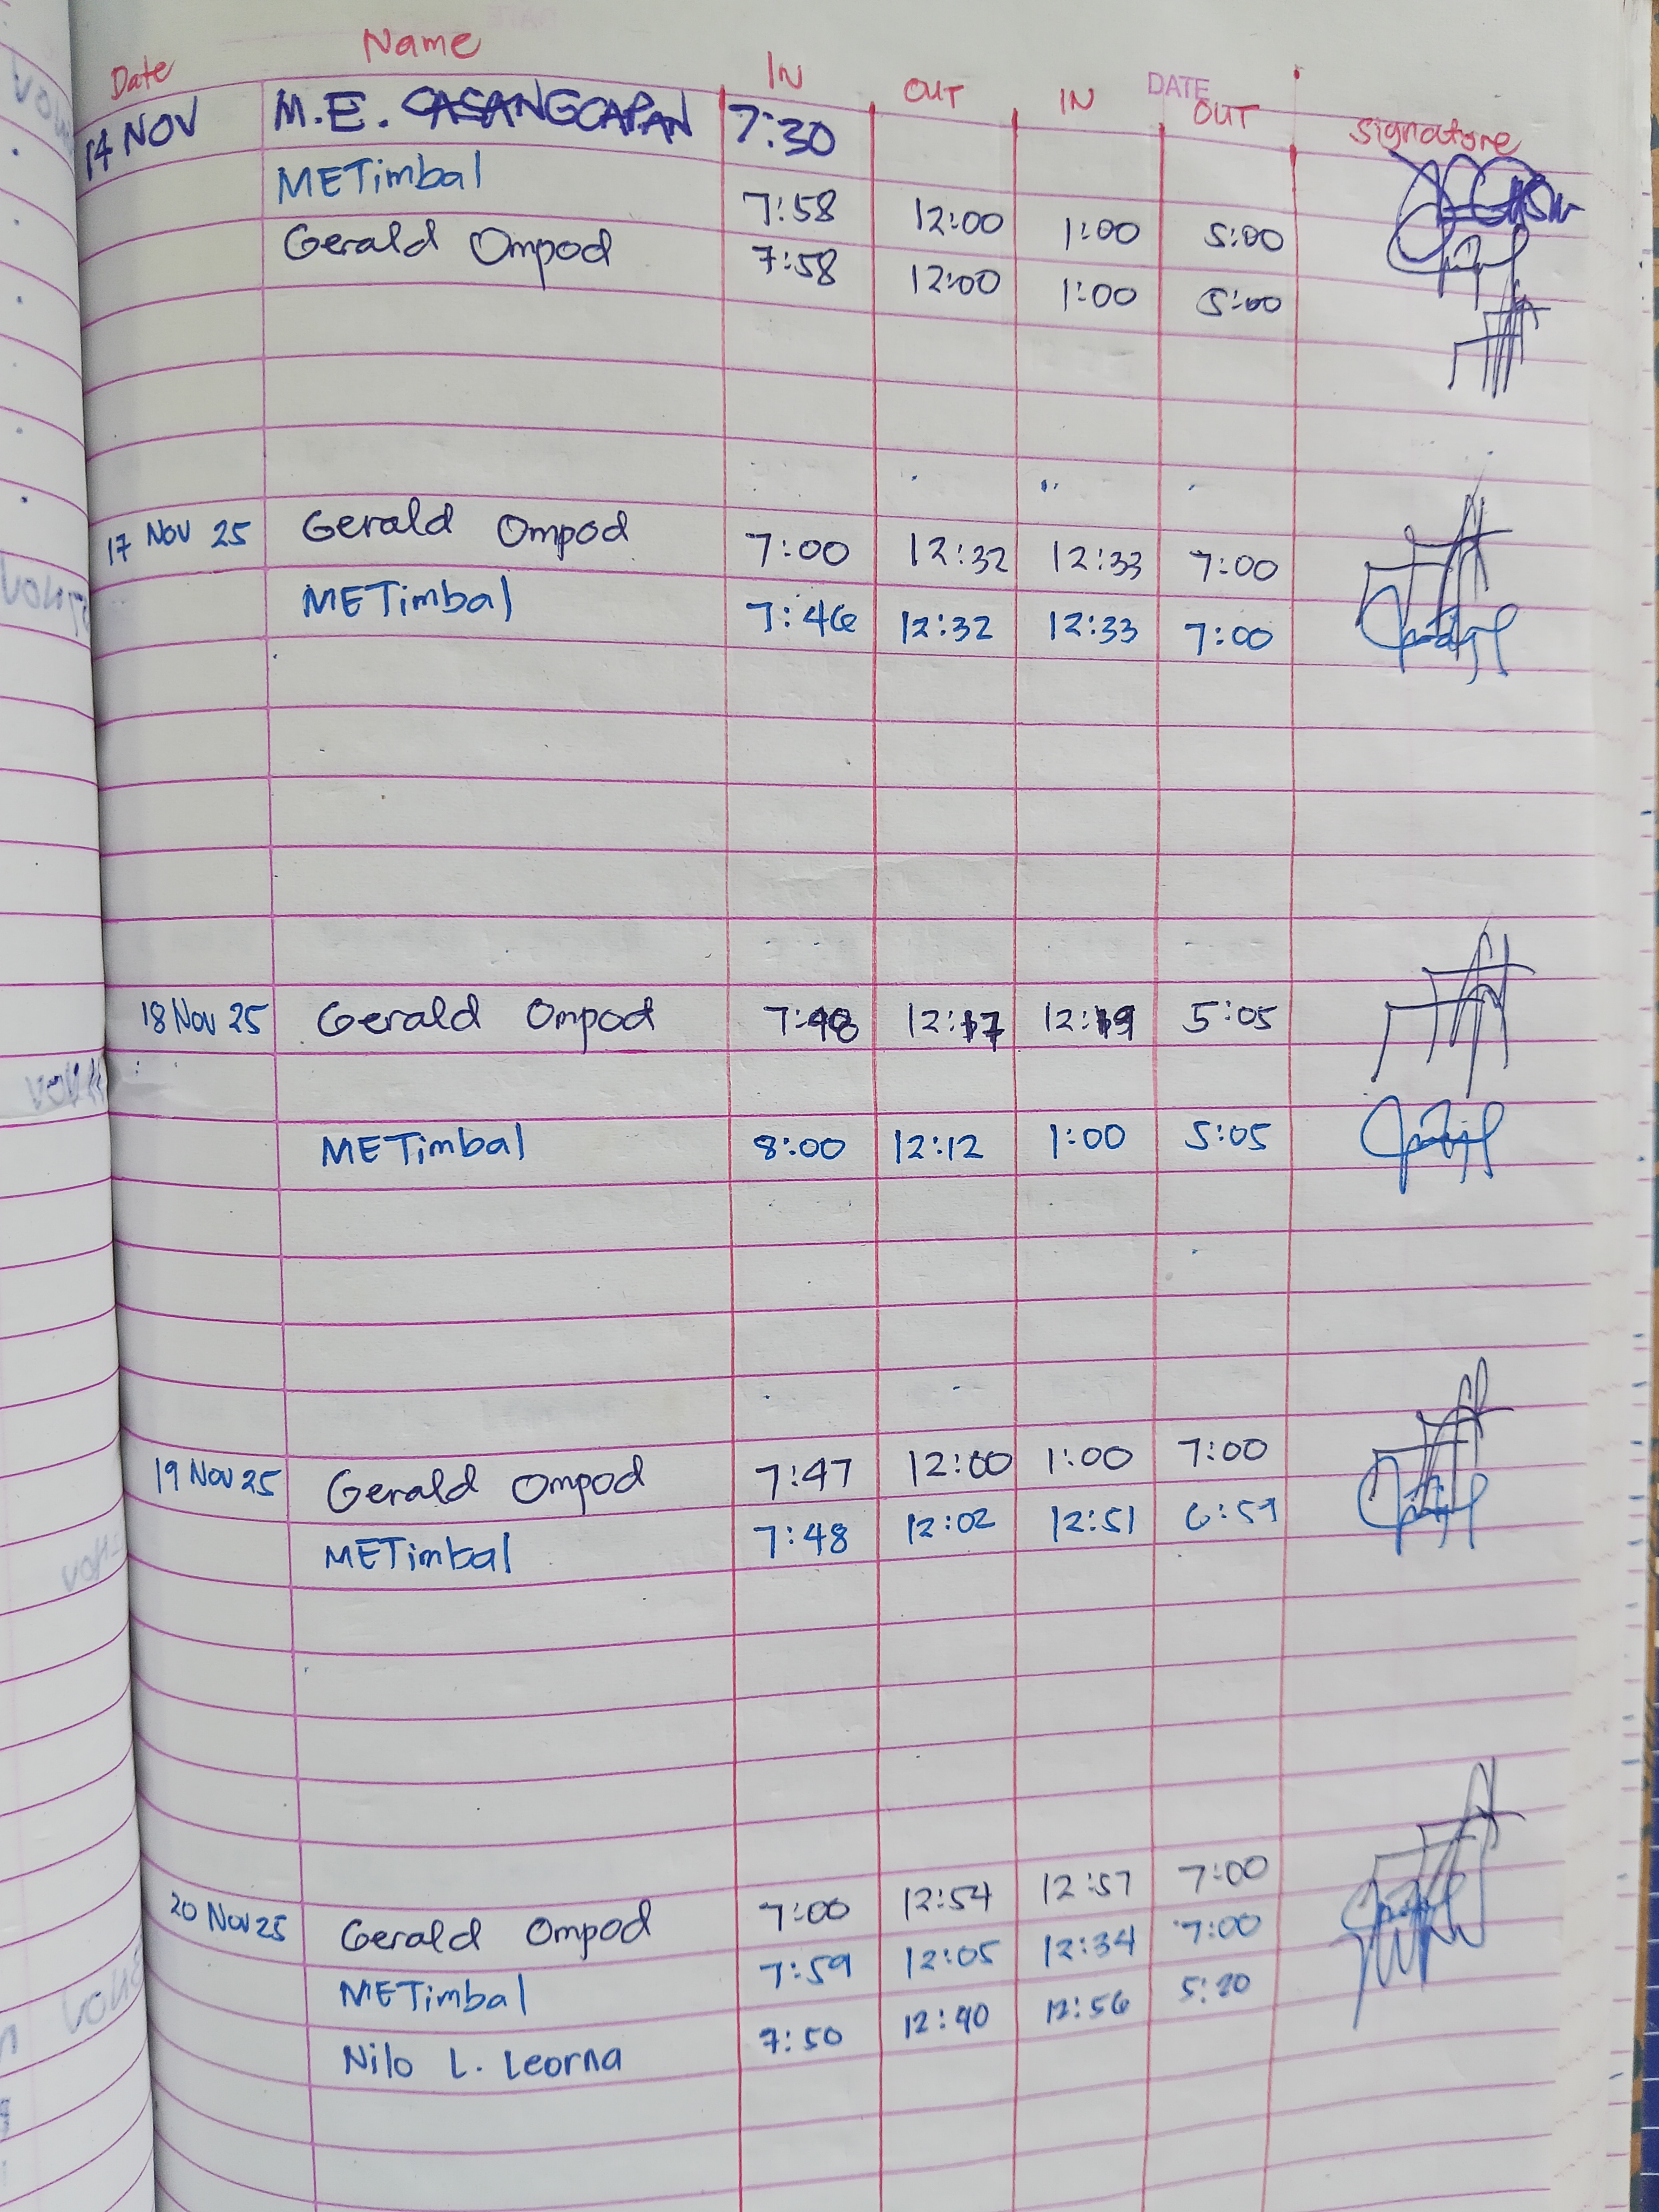 DATE
Date Name IN OUT IN OUT Signature
14 NOV M.E. CASANGCAPAN 7:30
METimbal 7:58 12:00 1:00 5:00
Gerald Ompod 7:58 12:00 1:00 5:00
17 Nov 25 Gerald Ompod 7:00 12:32 12:33 7:00
METimbal 7:46 12:32 12:33 7:00
18 Nov 25 Gerald Ompod 7:48 12:17 12:19 5:05
METimbal 8:00 12:12 1:00 5:05
19 Nov 25 Gerald Ompod 7:47 12:00 1:00 7:00
METimbal 7:48 12:02 12:51 6:59
20 Nov 25 Gerald Ompod 7:00 12:54 12:57 7:00
METimbal 7:59 12:05 12:34 7:00
Nilo L. Leorna 7:50 12:40 12:56 5:20